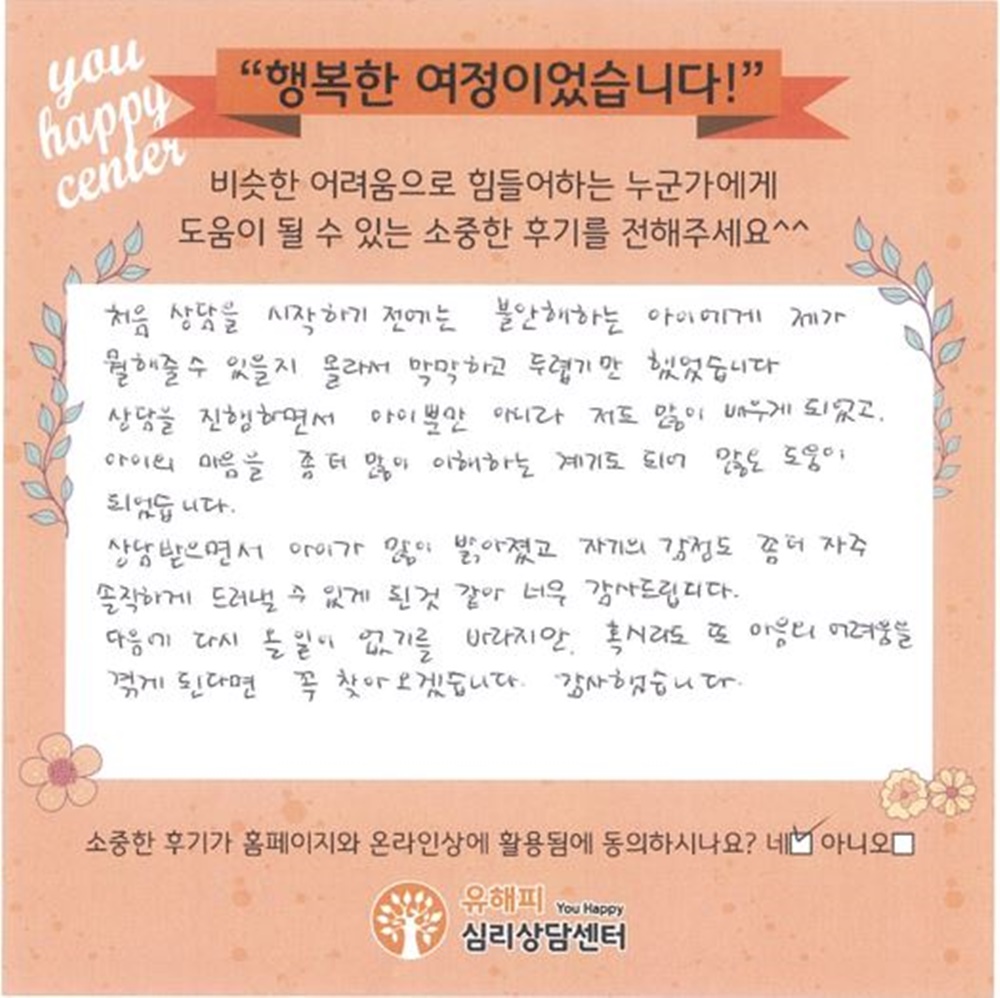 you
happy
center
“행복한 여정이었습니다!”
비슷한 어려움으로 힘들어하는 누군가에게
도움이 될 수 있는 소중한 후기를 전해주세요^^
처음 상담을 시작하기 전에는 불안해하는 아이에게 제가
뭘해줄수 있을지 몰라서 막막하고 두렵기만 했었습니다
상담을 진행하면서 아이뿐만 아니라 저도 많이 배우게 되었고,
아이의 마음을 좀더 많이 이해하는 계기도 되어 많은 도움이
되었습니다.
상담받으면서 아이가 많이 밝아졌고 자기의 감정도 좀더 자주
솔직하게 드러낼 수 있게 된것 같아 너무 감사드립니다.
다음에 다시 올일이 없기를 바라지만, 혹시라도 또 마음의 어려움을
겪게 된다면 꼭 찾아오겠습니다. 감사했습니다.
소중한 후기가 홈페이지와 온라인상에 활용됨에 동의하시나요? 네 아니오
유해피 You Happy
심리상담센터